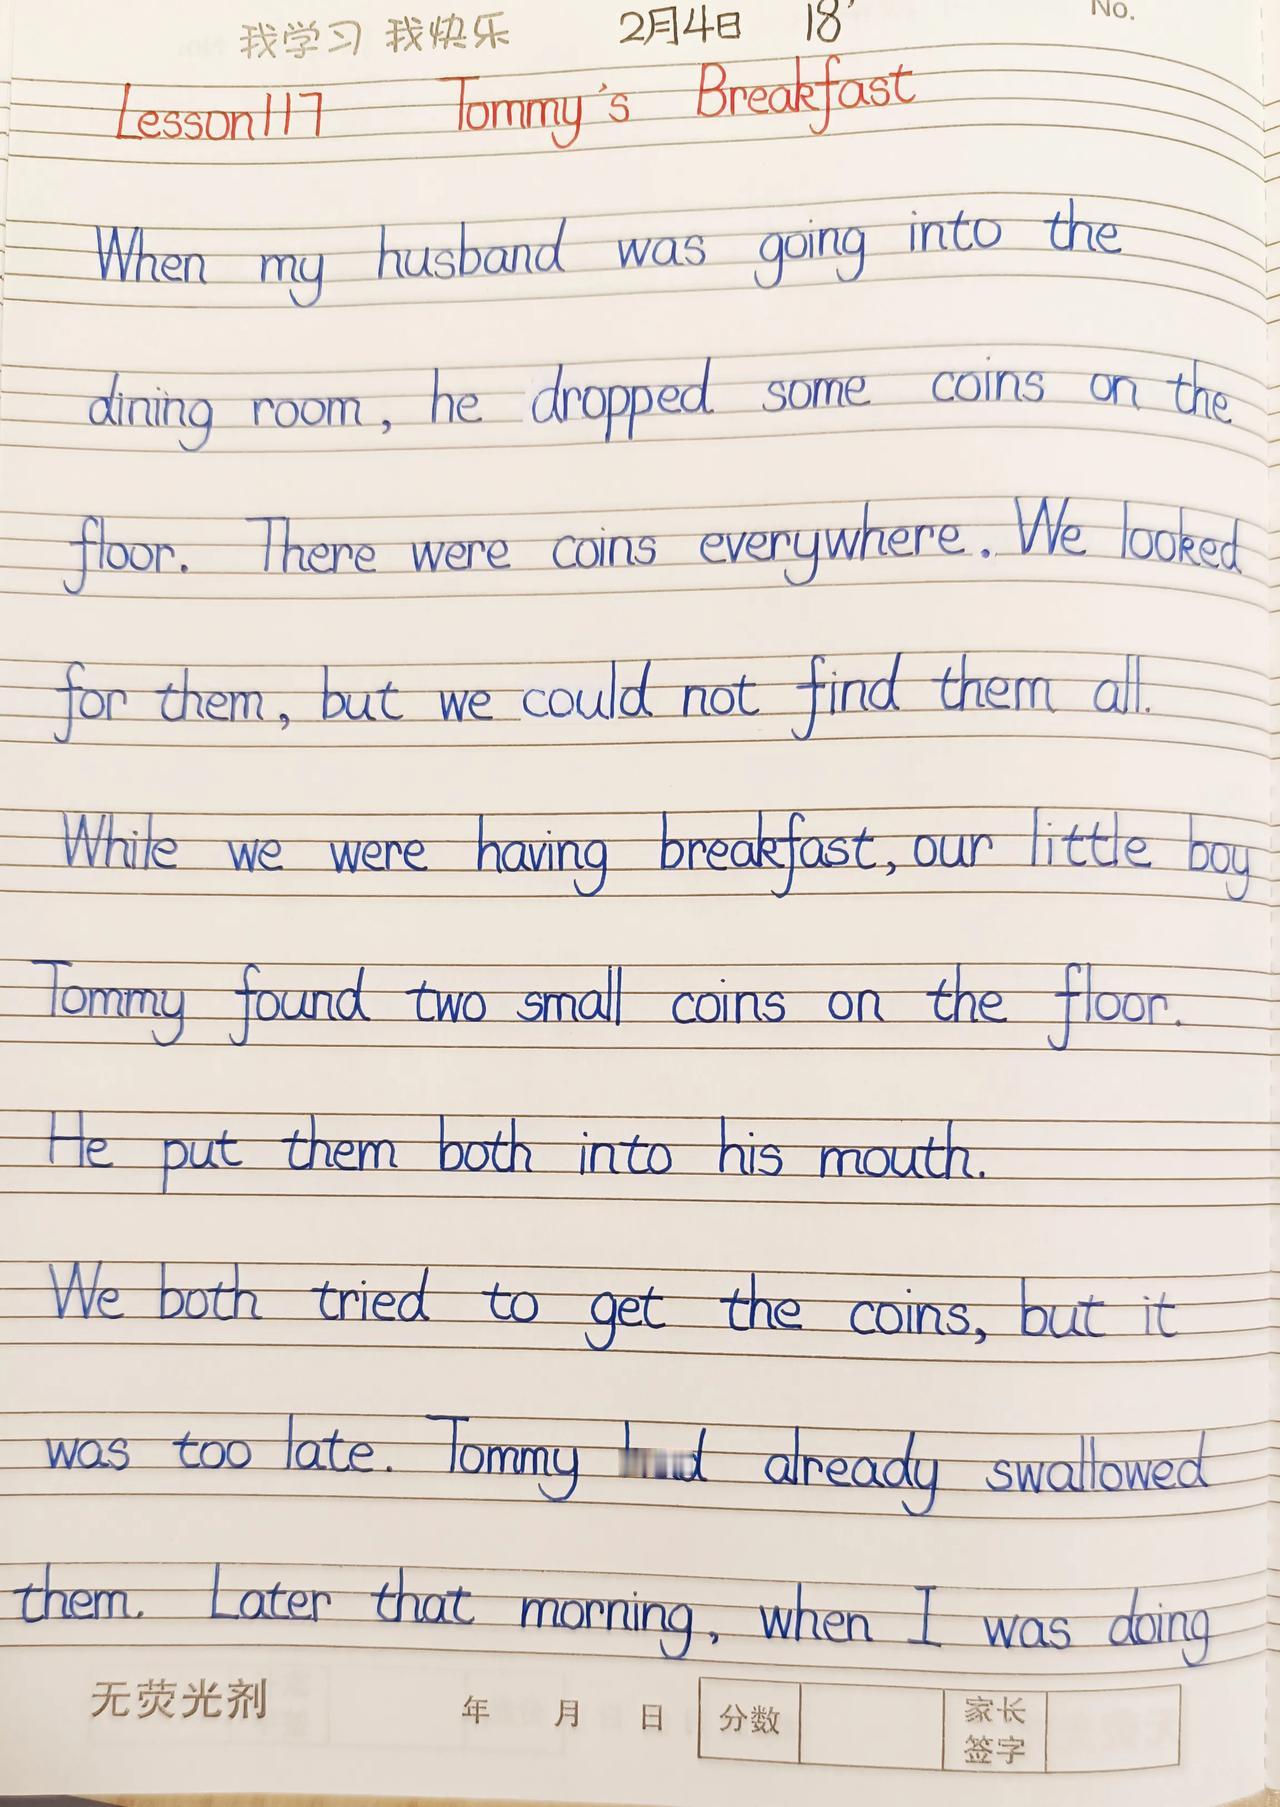 我学习 我快乐 2月4日 18'
No.
Lesson 117 Tommy's Breakfast
When my husband was going into the
dining room, he dropped some coins on the
floor. There were coins everywhere. We looked
for them, but we could not find them all.
While we were having breakfast, our little boy
Tommy found two small coins on the floor.
He put them both into his mouth.
We both tried to get the coins, but it
was too late. Tommy already swallowed
them. Later that morning, when I was doing
无荧光剂 年 月 日 分数 家长签字